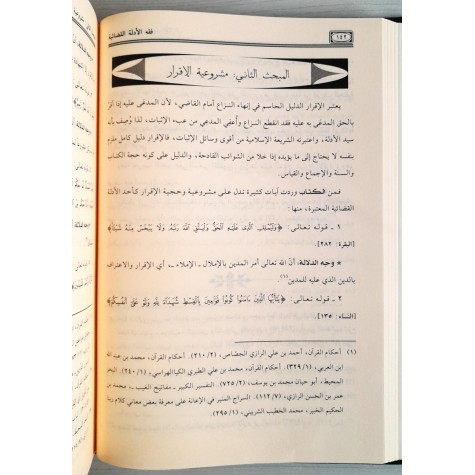 ١٤٢
فقه الأدلة القضائية
المبحث الثاني: مشروعية الإقرار
يعتبر الإقرار الدليل الحاسم في إنهاء النزاع أمام القاضي، لأن المدعى عليه إذا أقرّ
بالحق المدعى به عليه فقد انقطع النزاع وأُعفي المدعي من عبء الإثبات، لذا وُصِف بأن
سيد الأدلة، واعتبرته الشريعة الإسلامية من أقوى وسائل الإثبات، فالإقرار دليل كامل ملزم
بنفسه لا يحتاج إلى ما يؤيده إذا خلا من الشوائب القادحة، والدليل على كونه حجة الكتاب
والسنة والإجماع والقياس.
فمن الكتاب وردت آيات كثيرة تدل على مشروعية وحجية الإقرار كأحد الأدلة
القضائية المعتبرة، منها:
١ ـ قوله تعالى: ﴿وَلْيُمْلِلِ الَّذِي عَلَيْهِ الْحَقُّ وَلْيَتَّقِ اللَّهَ رَبَّهُ وَلَا يَبْخَسْ مِنْهُ شَيْئًا﴾
[البقرة: ٢٨٢].
* وجه الدلالة: أنّ الله تعالى أمر المدين بالإملال ـ الإملاء ـ، أي الإقرار والاعتراف
بالدين الذي عليه للمدين(١).
٢ ـ قوله تعالى: ﴿يَا أَيُّهَا الَّذِينَ آمَنُوا كُونُوا قَوَّامِينَ بِالْقِسْطِ شُهَدَاءَ لِلَّهِ وَلَوْ عَلَى أَنْفُسِكُمْ﴾
[النساء: ١٣٥].
(١) أحكام القرآن، أحمد بن علي الرازي الجصاص، (٢١٠/٢). أحكام القرآن، محمد بن عبد الله
ابن العربي، (٣٢٩/١). أحكام القرآن، محمد بن علي الطبري الكياالهراسي، (٢٤٠/١). البحر
المحيط، أبو حيان محمد بن يوسف، (٧٢٥/٢). التفسير الكبير ـ مفاتيح الغيب ـ، محمد بن
عمر بن الحسن الرازي، (١١٢/٧). السراج المنير في الإعانة على معرفة بعض معاني كلام ربنا
الحكيم الخبير، محمد الخطيب الشربيني، (٢٩٥/١).